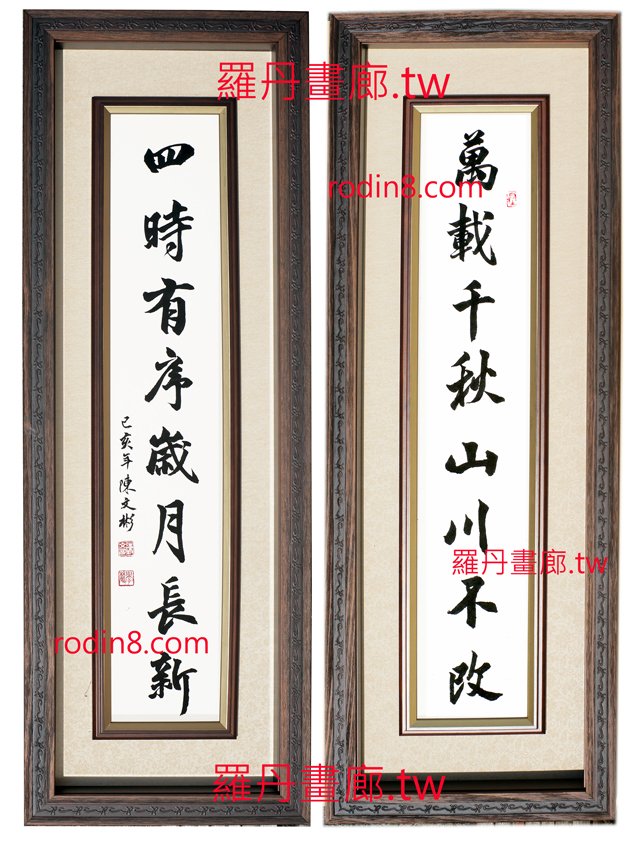 羅丹畫廊.tw
萬載千秋山川不改
rodin8.com
羅丹畫廊.tw
四時有序歲月長新
己亥年陳文彬
rodin8.com
羅丹畫廊.tw